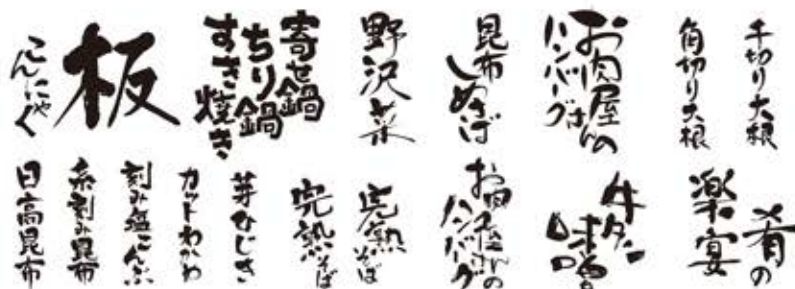 千切り大根
角切り大根
お肉屋さんの
ハンバーグ
昆布
しめさば
野沢菜
寄せ鍋
ちり鍋
すき焼き
板
こんにゃく
肴の
楽宴
牛タン
お肉屋さんの
ハンバーグ
完熟そば
完熟そば
芽ひじき
カットわかめ
刻み塩こんぶ
糸刻み昆布
日高昆布